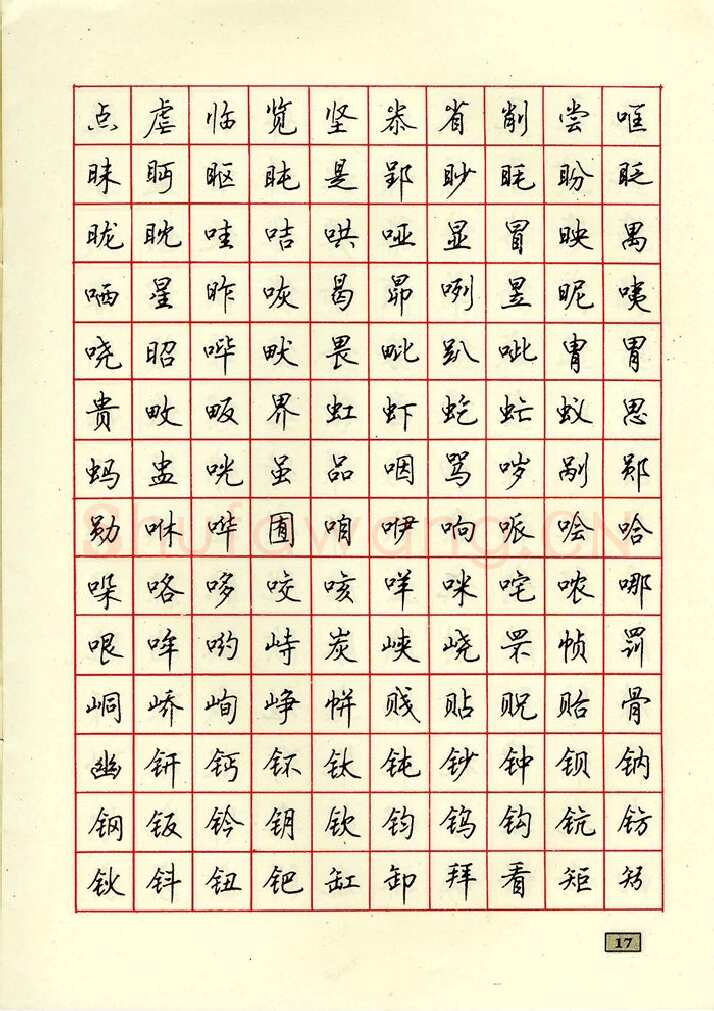 点虐临览竖尜省削尝哐
昧眄眍盹是郢眇眊盼眨
昽眈哇咭哄哑显冒映禺
哂星昨咴曷昴咧昱昵咦
哓昭哔畎畏毗趴呲胄胃
贵畋畈界虹虾虼虻蚁思
蚂盅咣虽品咽骂哕剐郧
勋咻哗囿咱咿响哌哙哈
哚咯哆咬咳咩咪咤哝哪
哏哞哟峙炭峡峣罘帧罚
峒峤峋峥帡贱贴贶贻骨
幽钘钙钚钛钝钞钟钡钠
钢钣钤钥钦钧钨钩钪钫
钬钭钮钯缸卸拜看矩矧
17
Shufawang.CN